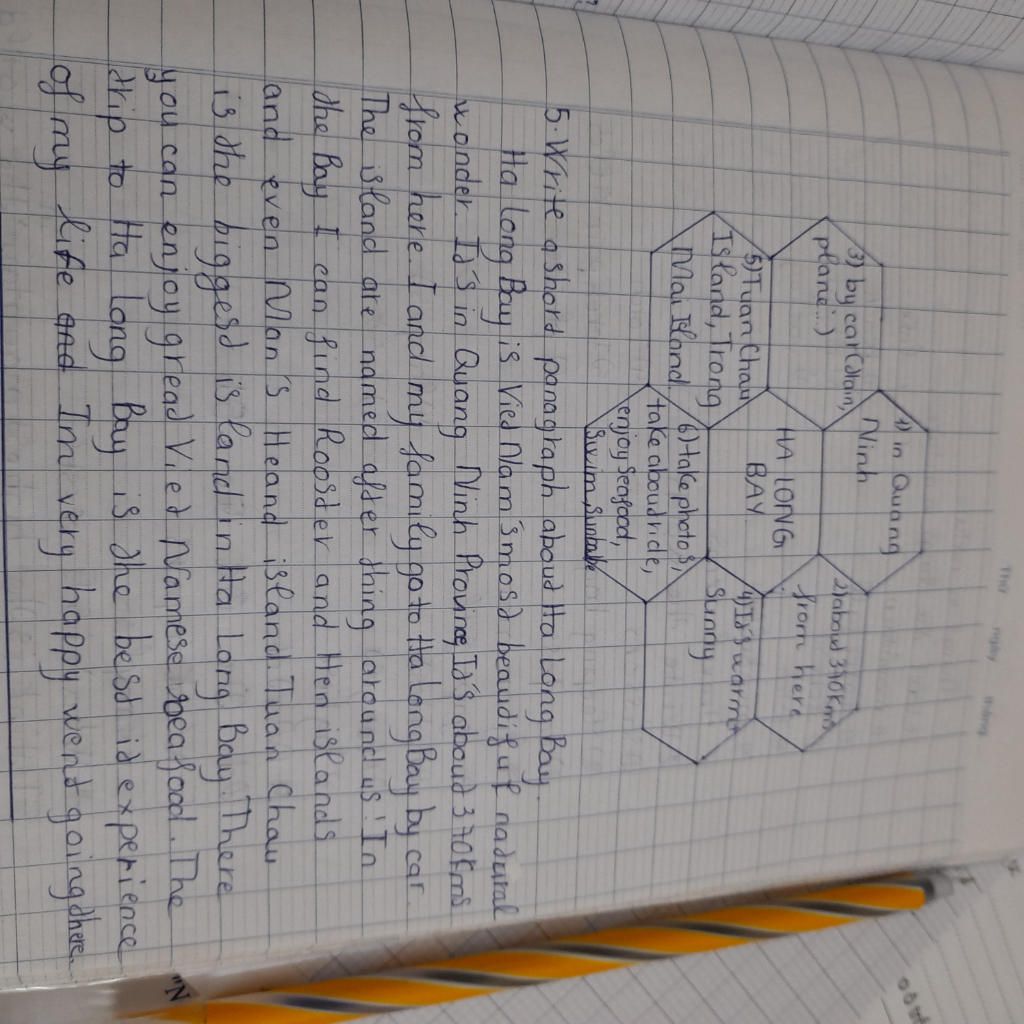 1) in Quang
Ninh
2) about 370kms
from here
3) by car (train,
plane...)
HA LONG
BAY
4) It's warm
Sunny
5) Tuan Chau
Island, Trong
Mai Island
6) take photos,
take aboud ride,
enjoy seafood,
5. Write a shord panagraph aboud Ha Long Bay.
Ha long Bay is Vied Nam's mosd beaudiful nadural
wonder. Id's in Quang Ninh Province Id's aboud 370kms
from here. I and my family go to Ha long Bay by car.
The island are named after thing around us! In
the Bay I can find Roosder and Hen islands
and even Man's Heand island. Tuan Chau
is the biggesd island in Ha Long Bay. There
you can enjoy gread Vied Namese seafood. The
drip to Ha Long Bay is dhe besd id experience
of my life and Im very happy wend going dhere.